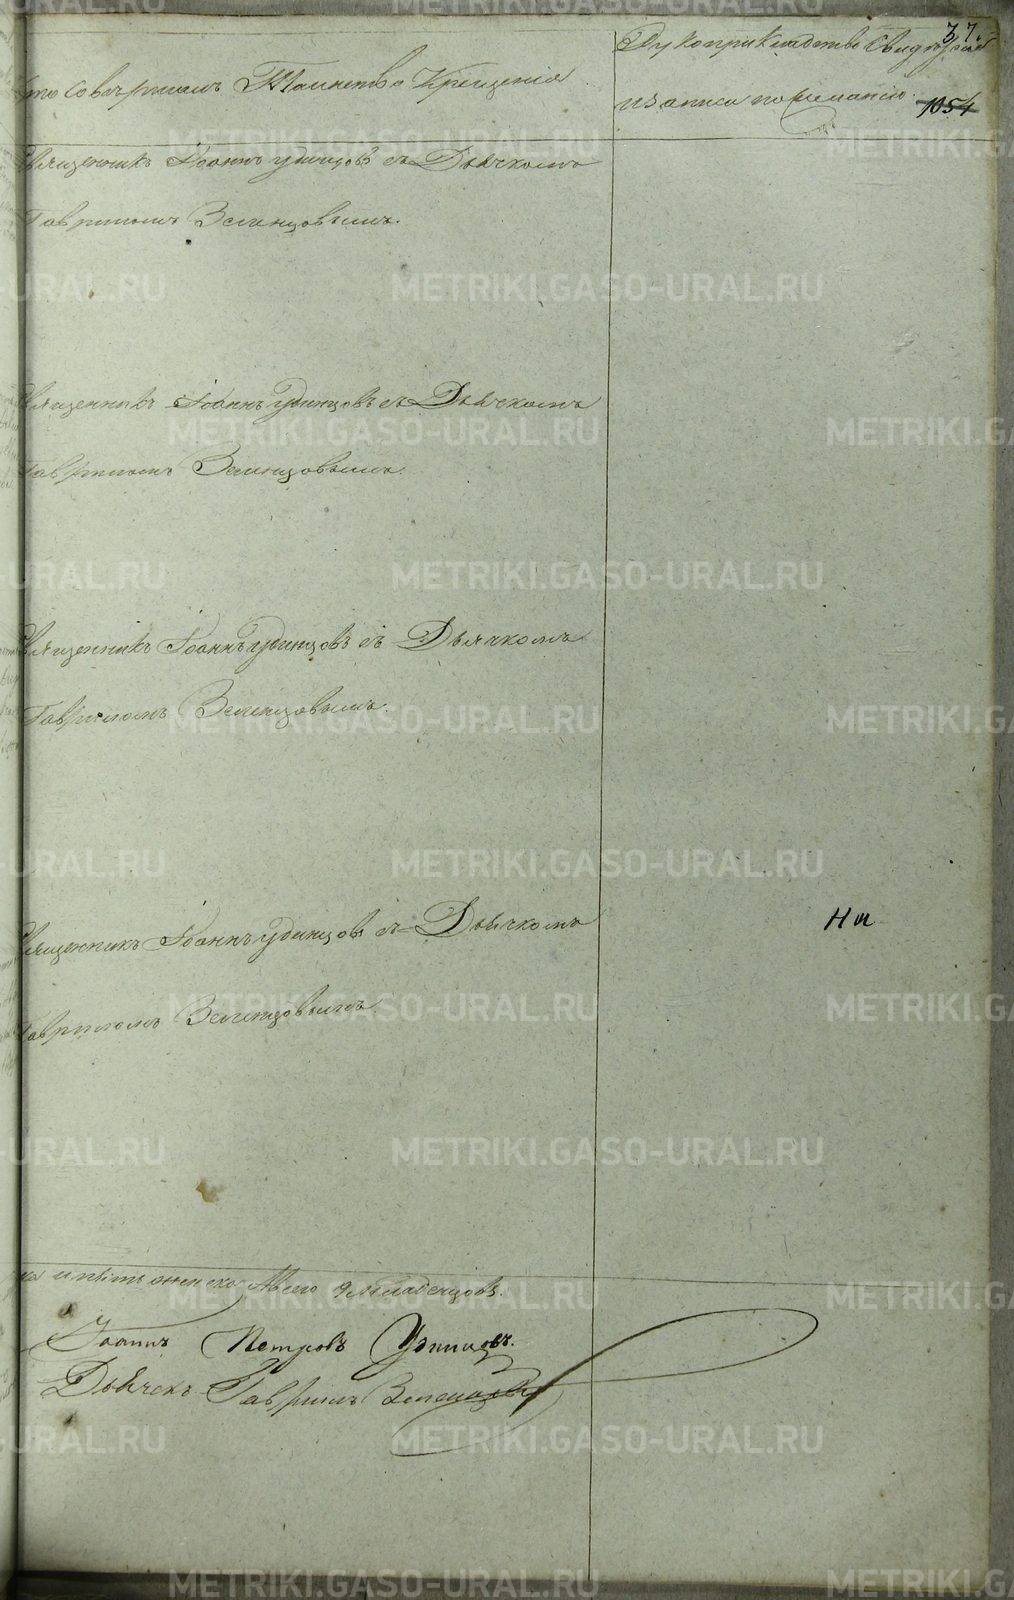 37.
Рукоприкладство Свидѣтелей
Кто совершалъ Таинство Крещенія
и записи по желанію.
1054
Священникъ Іоаннъ Удинцовъ съ Дьячкомъ
Гавріиломъ Зеленцовымъ.
Священникъ Іоаннъ Удинцовъ съ Дьячкомъ
Гавріиломъ Зеленцовымъ.
Священникъ Іоаннъ Удинцовъ съ Дьячкомъ
Гавріиломъ Зеленцовымъ.
Священникъ Іоаннъ Удинцовъ съ Дьячкомъ
Гавріиломъ Зеленцовымъ.
женска Всего 9 младенцовъ.
Іоаннъ Петровъ Удинцовъ.
Дьячекъ Гавріилъ Зеленцовъ
METRIKI.GASO-URAL.RU